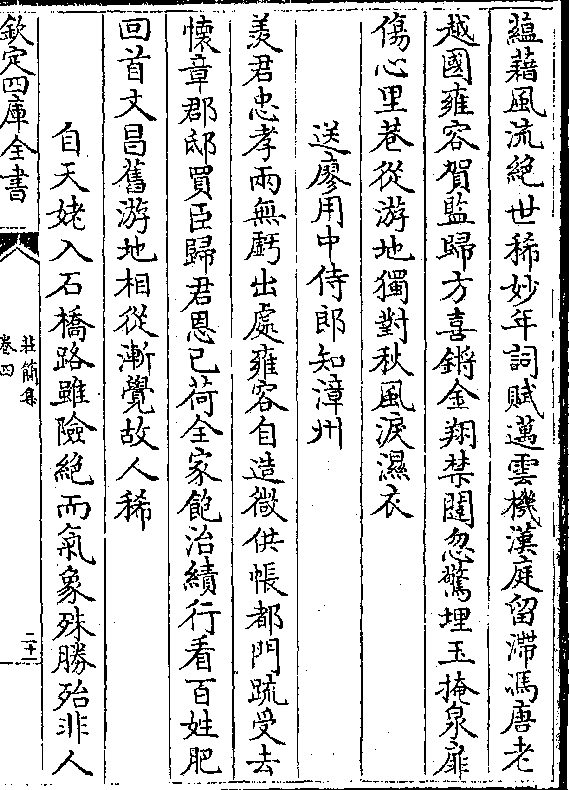 蘊藉風流絶世稀妙年詞賦邁雲機漢庭留滯馮唐老
越國雍容賀監歸方喜鏘金翔禁闥忽驚埋玉掩泉扉
傷心里巷從游地獨對秋風淚濕衣
送廖用中侍郎知漳州
羨君忠孝兩無虧出處雍容自造微供帳都門疏受去
懷章郡邸買臣歸君恩已荷全家飽治績行看百姓肥
回首文昌舊游地相從漸覺故人稀
自天姥入石橋路雖險絶而氣象殊勝殆非人
欽定四庫全書
莊簡集
卷四
二十一